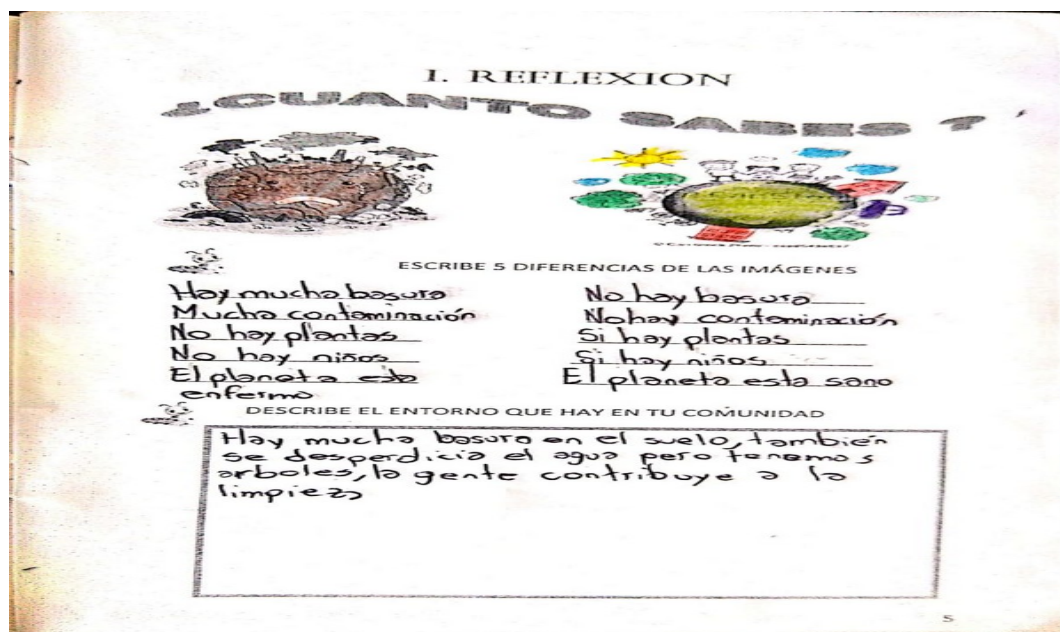 1. REFLEXION
¿CUANTO SABES ?
ESCRIBE 5 DIFERENCIAS DE LAS IMÁGENES
Hay mucha basura
Mucha contaminación
No hay plantas
No hay niños
El planeta esta
enfermo
No hay basura
No hay contaminación
Si hay plantas
Si hay niños
El planeta esta sano
DESCRIBE EL ENTORNO QUE HAY EN TU COMUNIDAD
Hay mucha basura en el suelo, también
se desperdicia el agua pero tenemos
arboles, la gente contribuye a la
limpieza
5